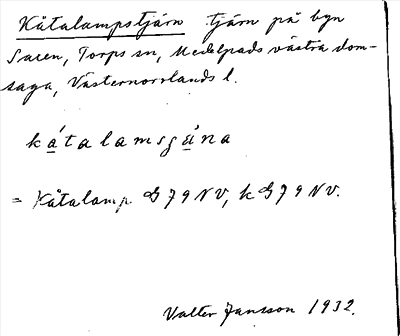 Kåtalampstjärn tjärn på byn
Saren, Torps sn, Medelpads västra dom-
saga, Västernorrlands l.
= Kåtalamp. G 79 NV, k G 79 NV.
Valter Jansson 1932.